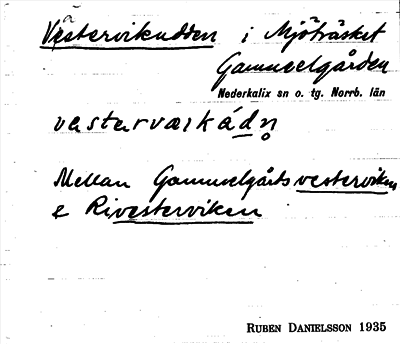 Västervikudden i Mjöträsket
Gammelgården
Nederkalix sn o. tg. Norrb. län
vastarvæikád̲n̥
Mellan Gammelgårdsvesterviken
& Rivesterviken
RUBEN DANIELSSON 1935